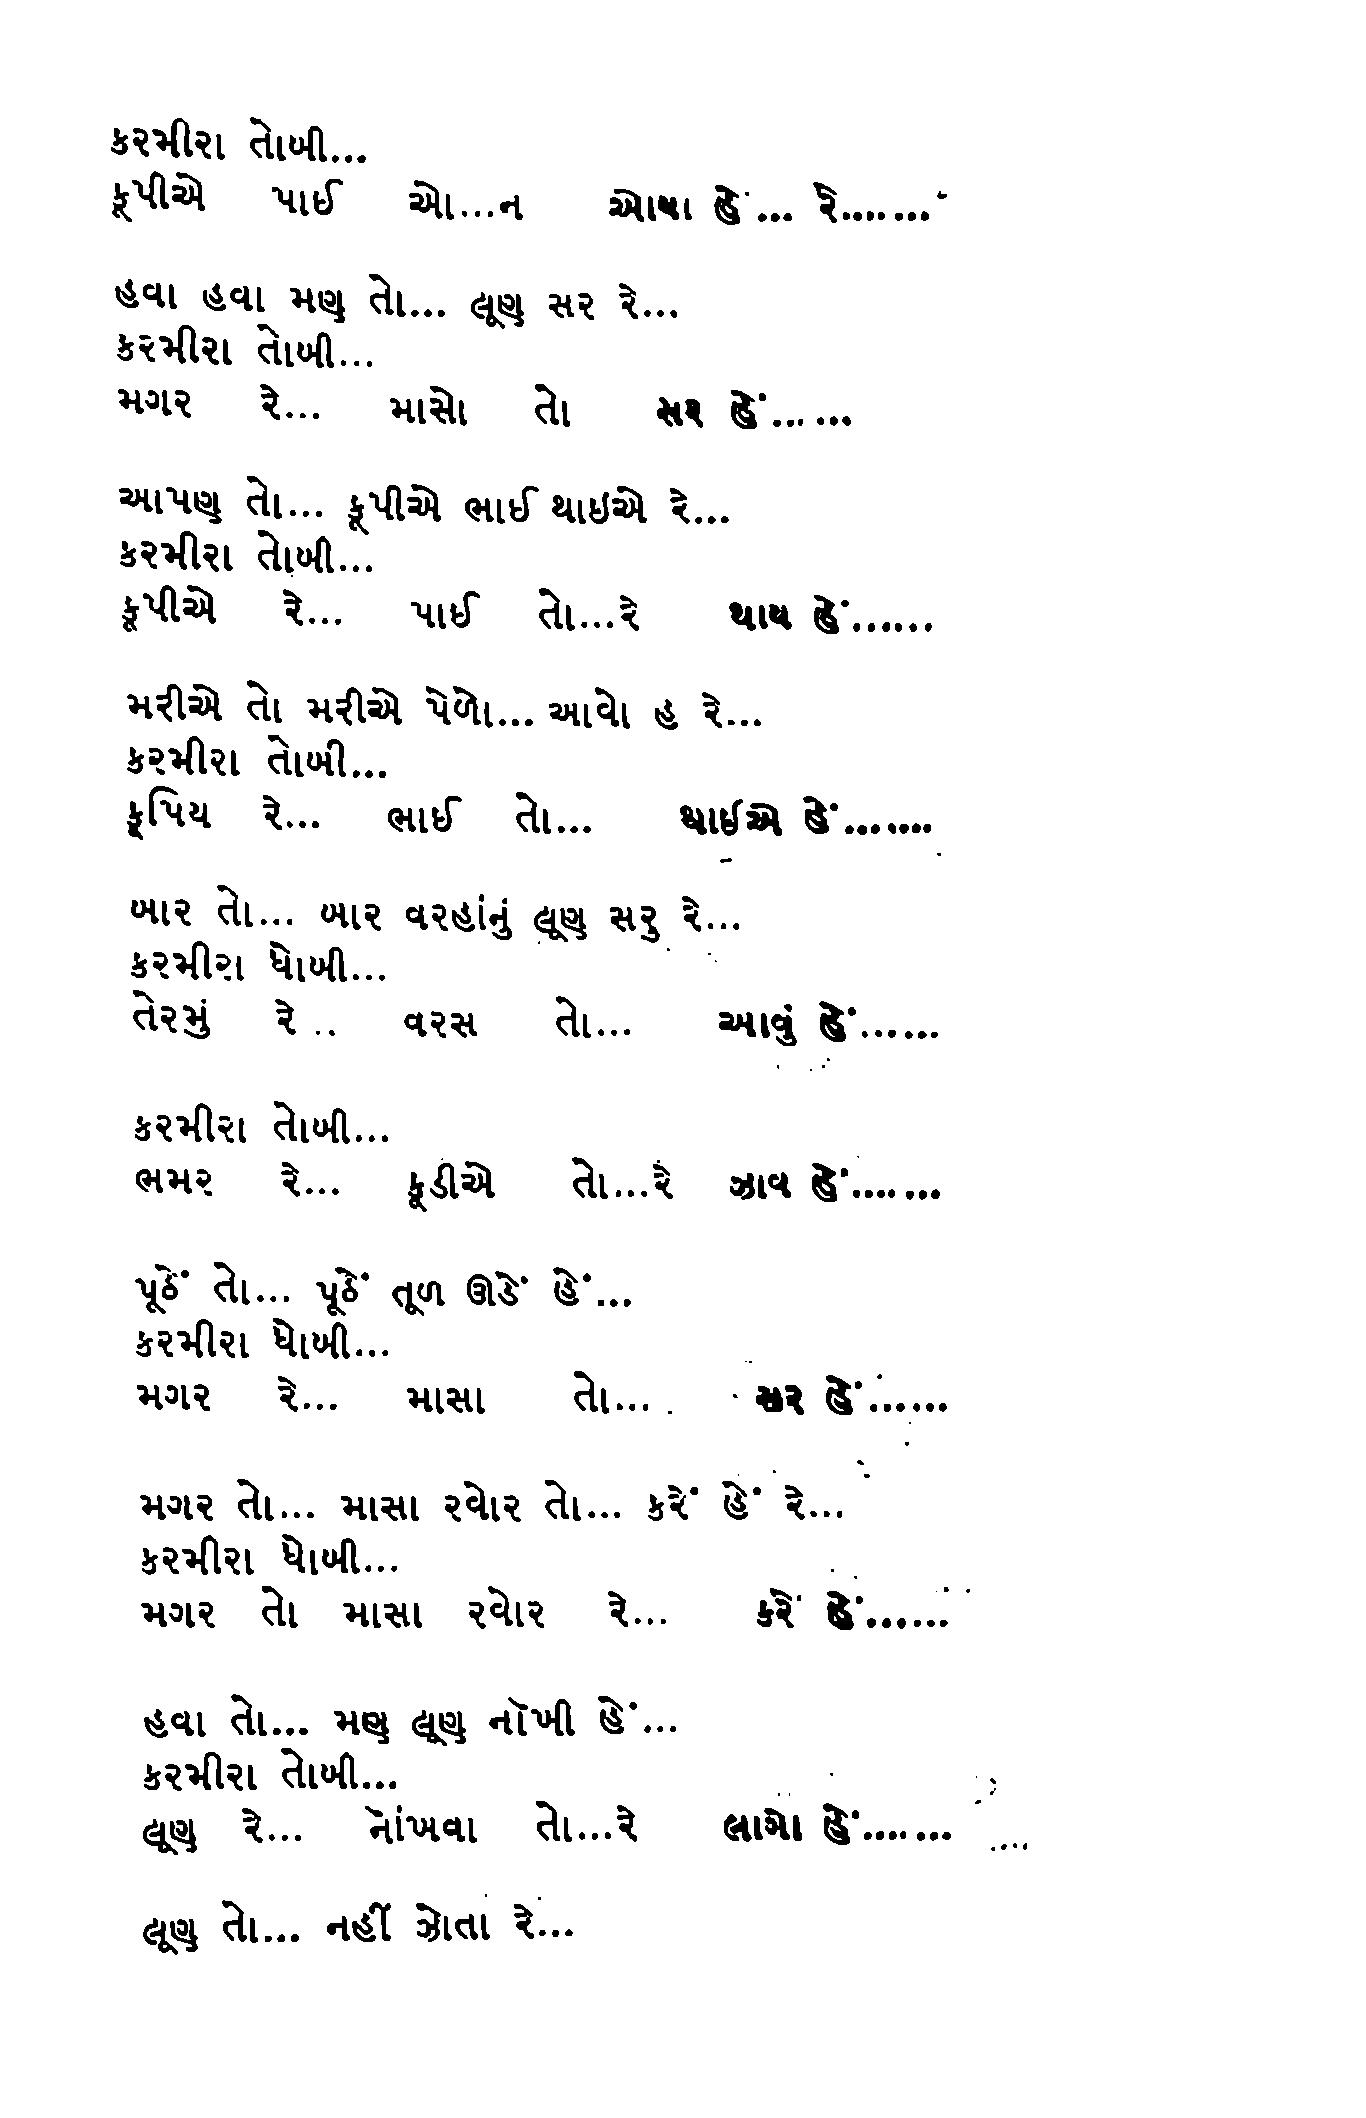 કરમીરા તોખી...
કૂપીએ પાઈ ઓ...ન ઓયા હેં... રે.......
હવા હવા મણુ તો... લૂણુ સર રે...
કરમીરા તોખી...
મગર રે... માસો તો સર હેં......
આપણુ તો... કૂપીએ ભાઈ થાઇએ રે...
કરમીરા તોખી...
કૂપીએ રે... પાઈ તો...રે થાય હેં......
મરીએ તો મરીએ પેળો... આવો હ રે...
કરમીરા તોખી...
કૂપિય રે... ભાઈ તો... થાઈએ હેં.......
બાર તો... બાર વરહાંનું લૂણુ સરુ રે...
કરમીરા ધોખી...
તેરમું રે .. વરસ તો... આવું હેં......
કરમીરા તોખી...
ભમર રે... કૂડીએ તો...રે ઝાવ હેં.......
પૂઠેં તો... પૂઠેં તૂળ ઊડેં હેં...
કરમીરા ધોખી...
મગર રે... માસા તો... સર હેં......
મગર તો... માસા રવોર તો... કરેં હેં રે...
કરમીરા ધોખી...
મગર તો માસા રવોર રે... કરેં હેં......
હવા તો... મણુ લૂણુ નૉખી હેં...
કરમીરા તોખી...
લૂણુ રે... નૉંખવા તો...રે લાગો હેં.......
લૂણુ તો... નહીં ઝોતા રે...